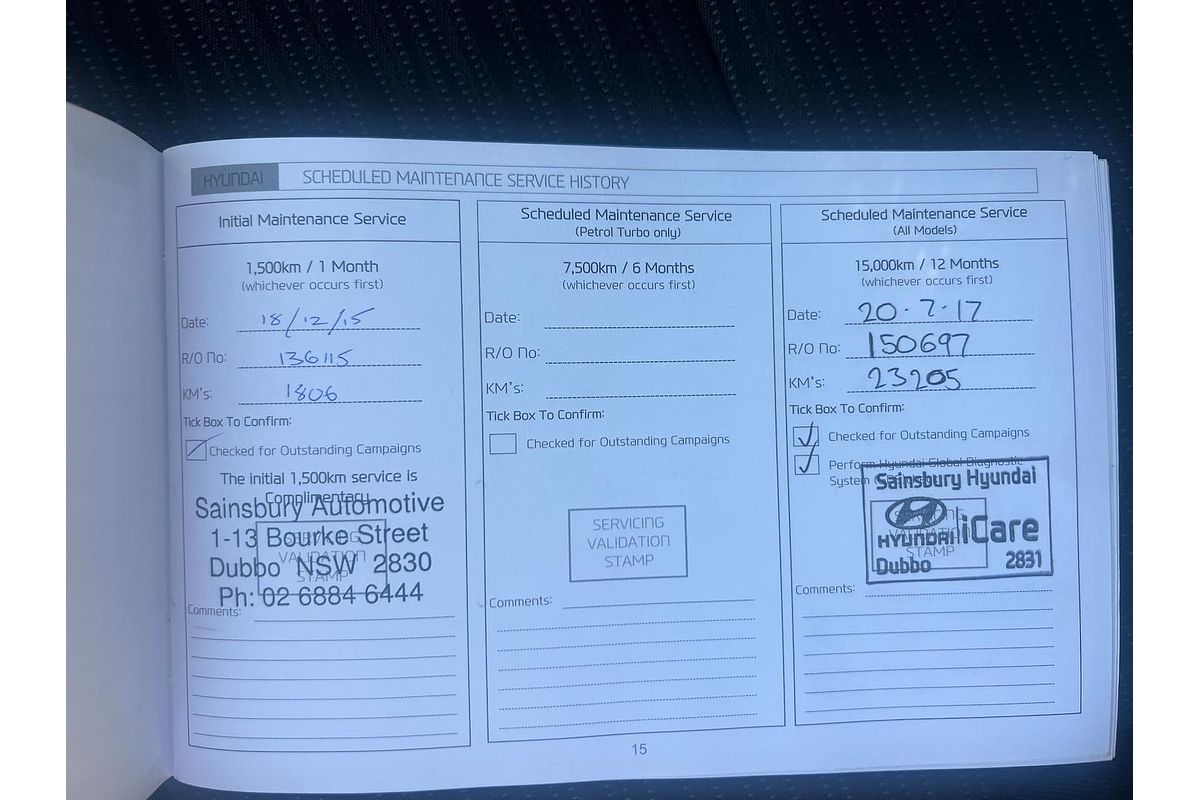 HYUNDAI SCHEDULED MAINTENANCE SERVICE HISTORY
Initial Maintenance Service
1,500km / 1 Month
(whichever occurs first)
Date: 18/12/15
R/O No: 136115
KM's: 1806
Tick Box To Confirm:
Checked for Outstanding Campaigns
The initial 1,500km service is
Complimentary
Sainsbury Automotive
1-13 Bourke Street
Dubbo NSW 2830
Ph: 02 6884 6444
SERVICING
VALIDATION
STAMP
Comments:
Scheduled Maintenance Service
(Petrol Turbo only)
7,500km / 6 Months
(whichever occurs first)
Date:
R/O No:
KM's:
Tick Box To Confirm:
Checked for Outstanding Campaigns
SERVICING
VALIDATION
STAMP
Comments:
Scheduled Maintenance Service
(All Models)
15,000km / 12 Months
(whichever occurs first)
Date: 20.7.17
R/O No: 150697
KM's: 23205
Tick Box To Confirm:
Checked for Outstanding Campaigns
Perform Hyundai Global Diagnostic
System
Sainsbury Hyundai
HYUNDAI iCare
Dubbo 2831
SERVICING
VALIDATION
STAMP
Comments:
15